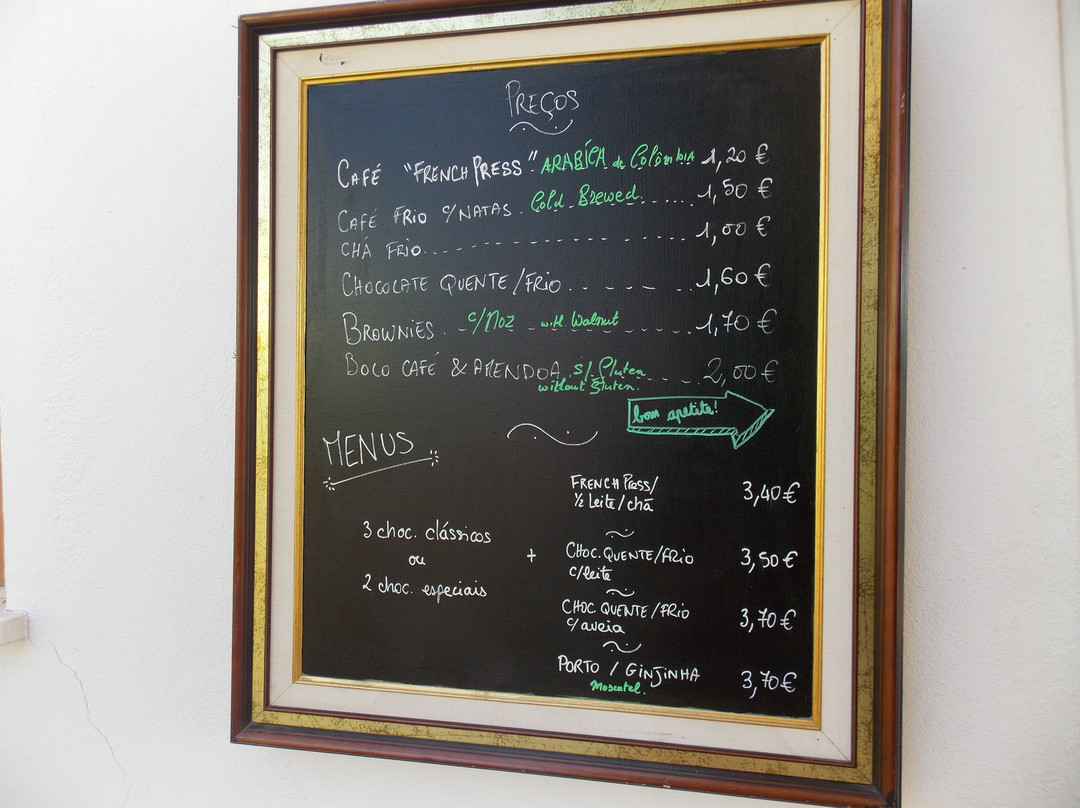 PREÇOS
CAFÉ "FRENCH PRESS" ARABÍCA de Colômbia 1,20 €
CAFÉ FRIO c/NATAS Cold Brewed 1,50 €
CHÁ FRIO 1,00 €
CHOCOLATE QUENTE/FRIO 1,60 €
BROWNIES c/Noz with Walnut 1,70 €
BOLO CAFÉ & AMENDOA s/ Gluten 2,00 €
without Gluten.
bom apetite!
MENUS
3 choc. clássicos
ou
2 choc. especiais
+
FRENCH PRESS/
½ Leite/chá
3,40 €
CHOC. QUENTE/FRIO
c/leite
3,50 €
CHOC. QUENTE/FRIO
c/aveia
3,70 €
PORTO / GINJINHA
Moscatel.
3,70 €